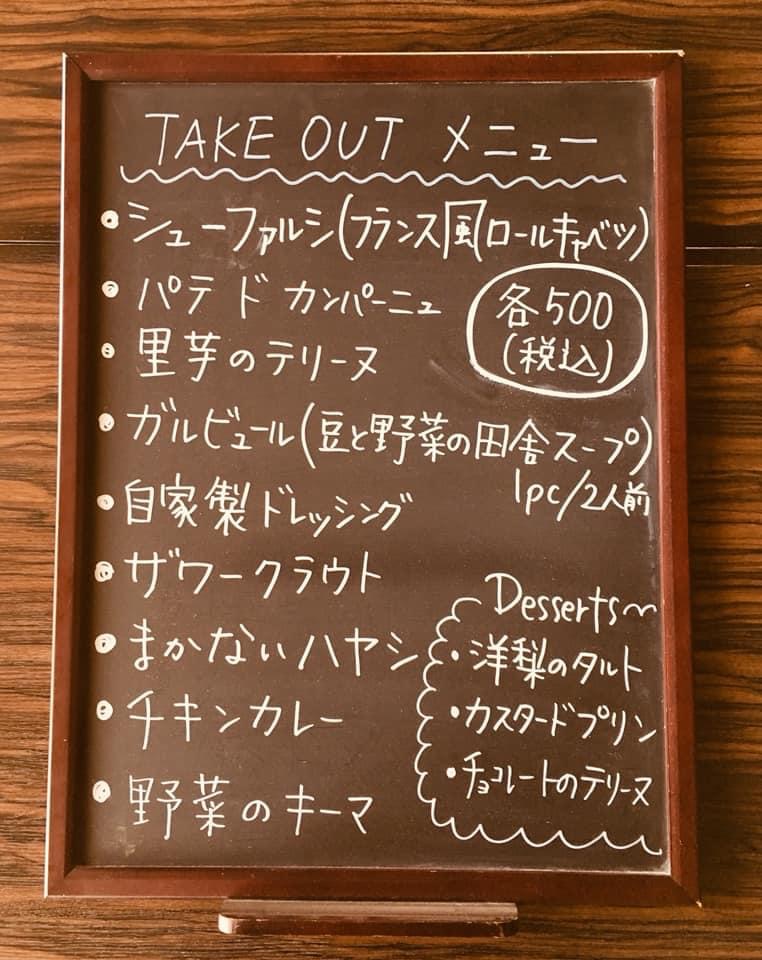 TAKE OUT メニュー
シューファルシ(フランス風ロールキャベツ)
パテ ド カンパーニュ
各500
(税込)
里芋のテリーヌ
ガルビュール(豆と野菜の田舎スープ)
1pc/2人前
自家製ドレッシング
ザワークラウト
まかないハヤシ
チキンカレー
野菜のキーマ
Desserts〜
・洋梨のタルト
・カスタードプリン
・チョコレートのテリーヌ